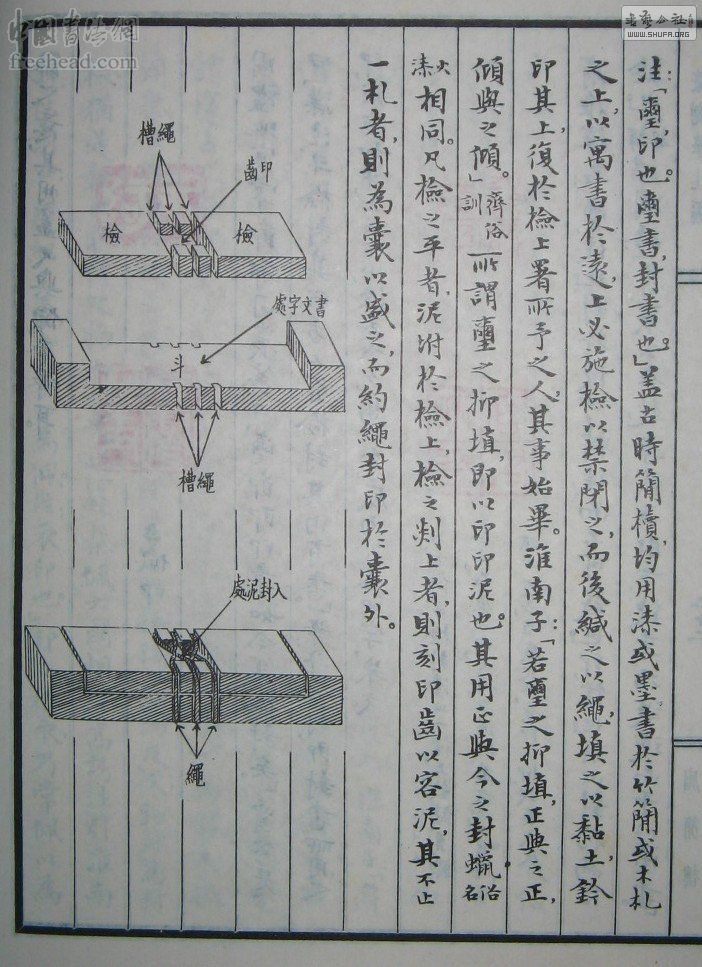 注：「璽，印也。璽書，封書也。」蓋古時簡櫝，均用漆或墨書於竹簡或木札
之上，以寓書於遠，上必施檢以禁閉之，而後緘之以繩，填之以黏土，鈐
印其上，復於檢上署所予之人，其事始畢。淮南子：「若璽之抑埴，正與之正，
傾與之傾。」齊俗訓 所謂璽之抑埴，即以印印泥也。其用正與今之封蠟俗名
火漆相同。凡檢之平者，泥坿於檢上，檢之剡上者，則刻印齒以容泥，其不止
一札者，則為囊以盛之，而約繩封印於囊外。
槽繩
齒印
檢
檢
處字文書
斗
槽繩
處泥封入
繩
中國書法網
freehead.com
書藝公社
WWW.SHUFA.ORG